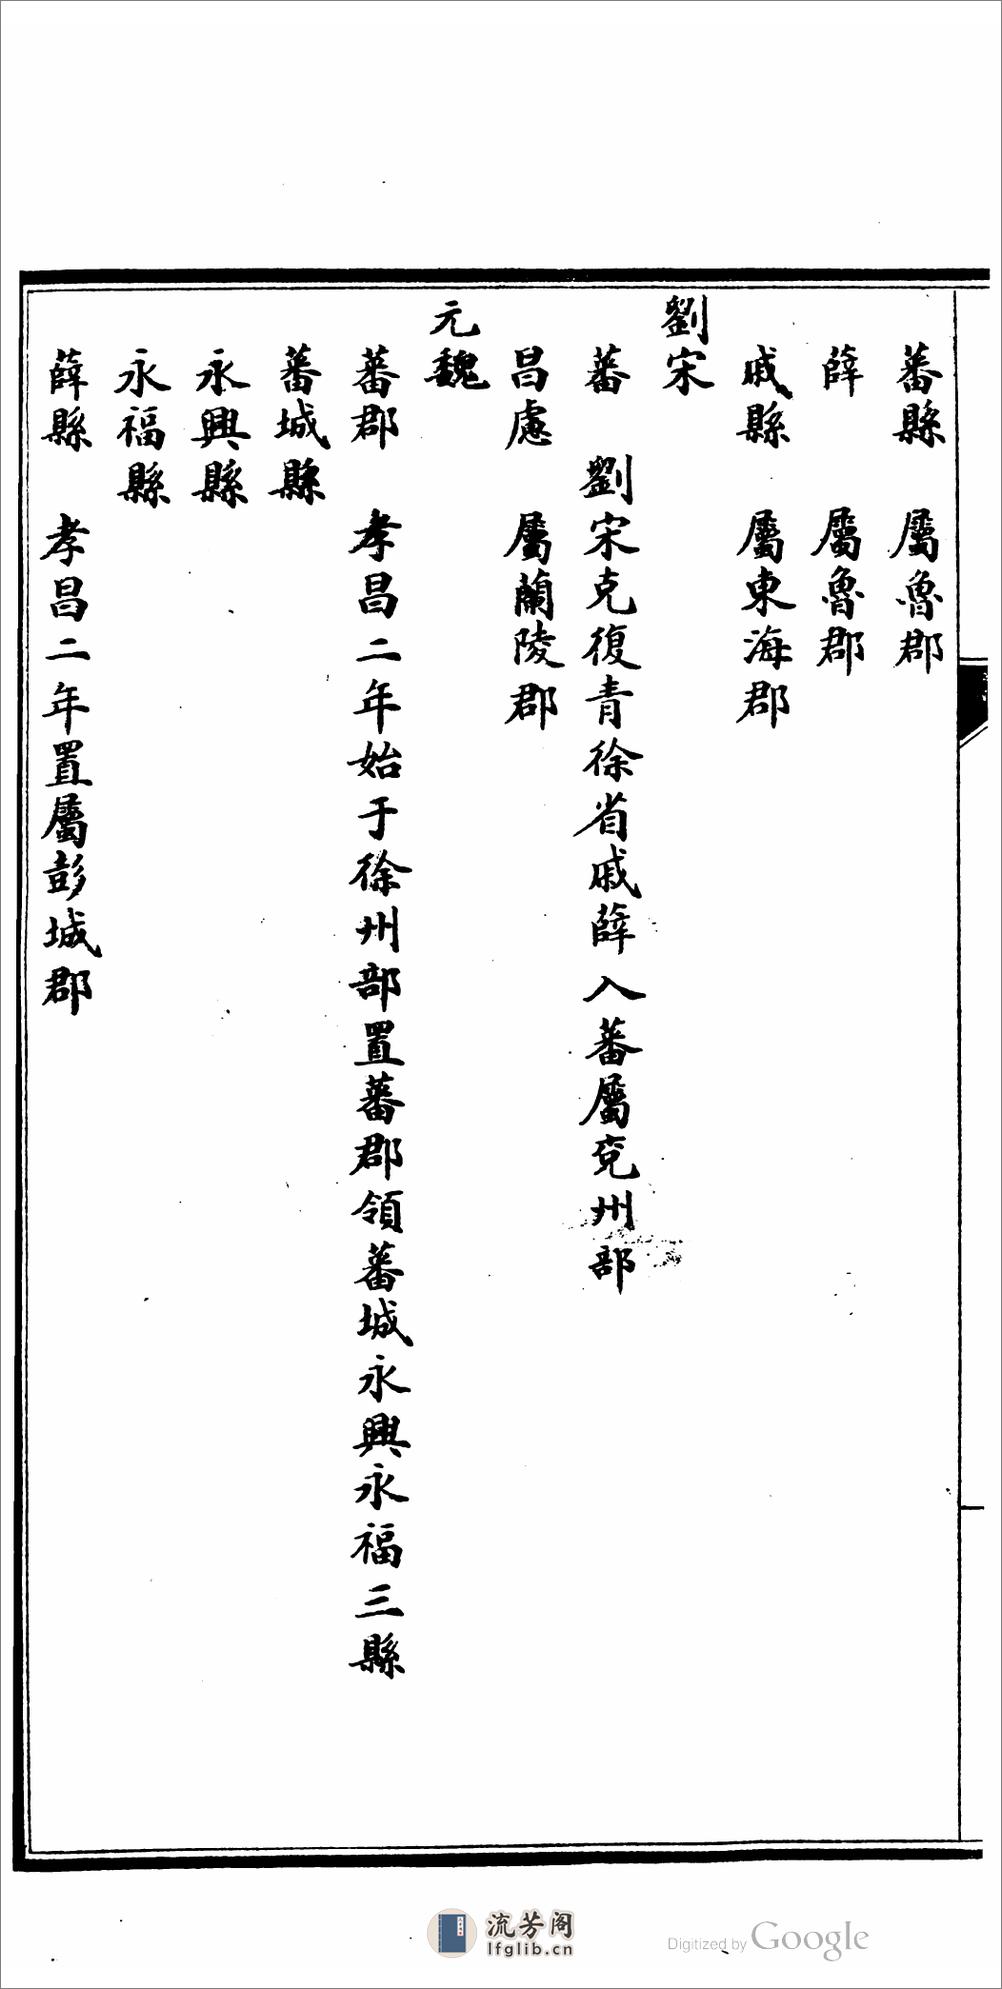 蕃縣 屬魯郡
薛 屬魯郡
戚縣 屬東海郡
劉宋
蕃 劉宋克復青徐省戚薛入蕃屬兗州部
昌慮 屬蘭陵郡
元魏
蕃郡 孝昌二年始于徐州部置蕃郡領蕃城永興永福三縣
蕃城縣
永興縣
永福縣
薛縣 孝昌二年置屬彭城郡
流芳阁
lfglib.cn
Digitized by Google